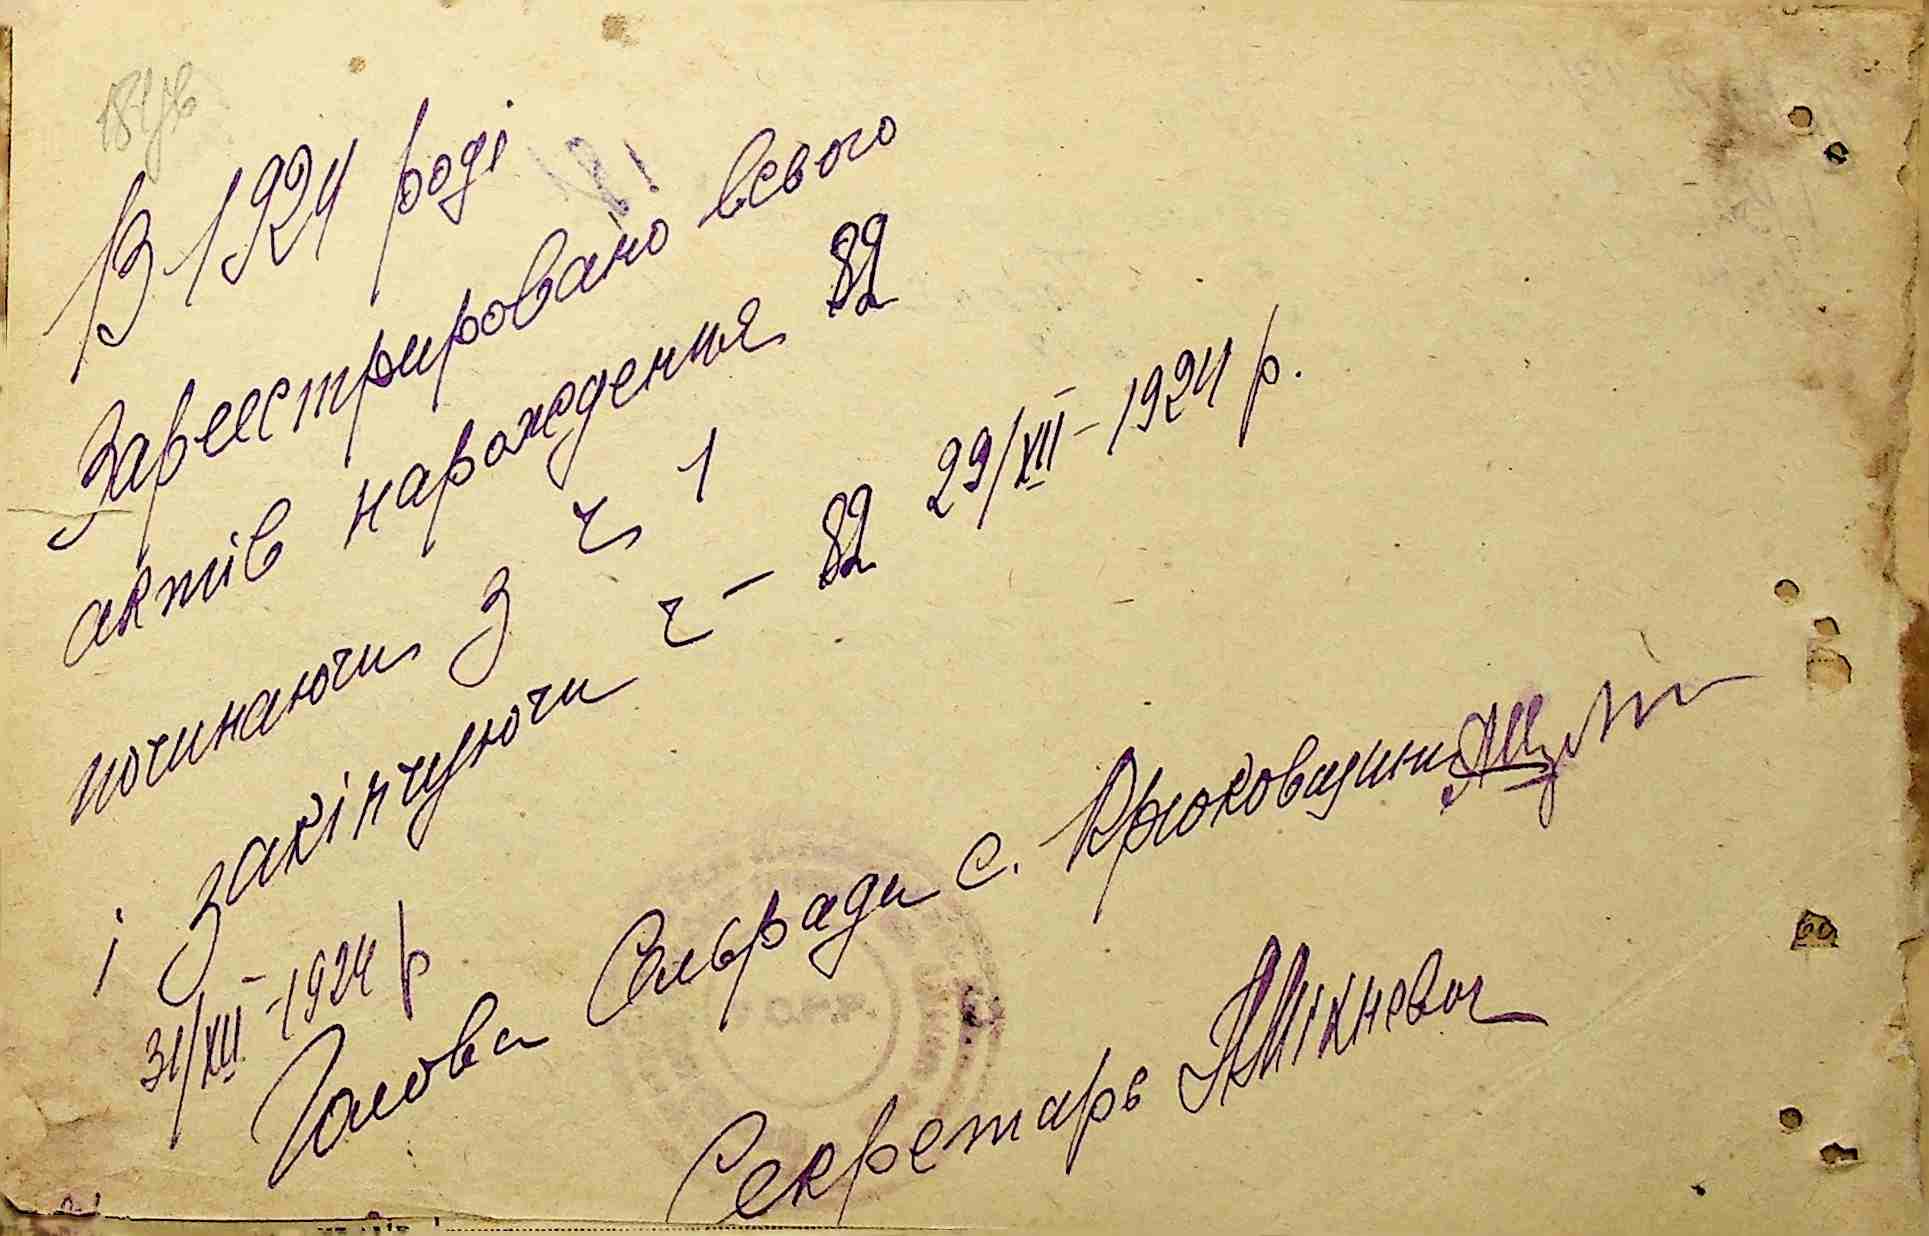 В 1924 році
Зареєстрировано всього
актів нарождення 82
починаючи з ч 1
і закінчуючи ч – 82 29/XII – 1924 р.
31/XII – 1924 р
Голова Сельради с. Крюковщини
Секретарь Міхневич